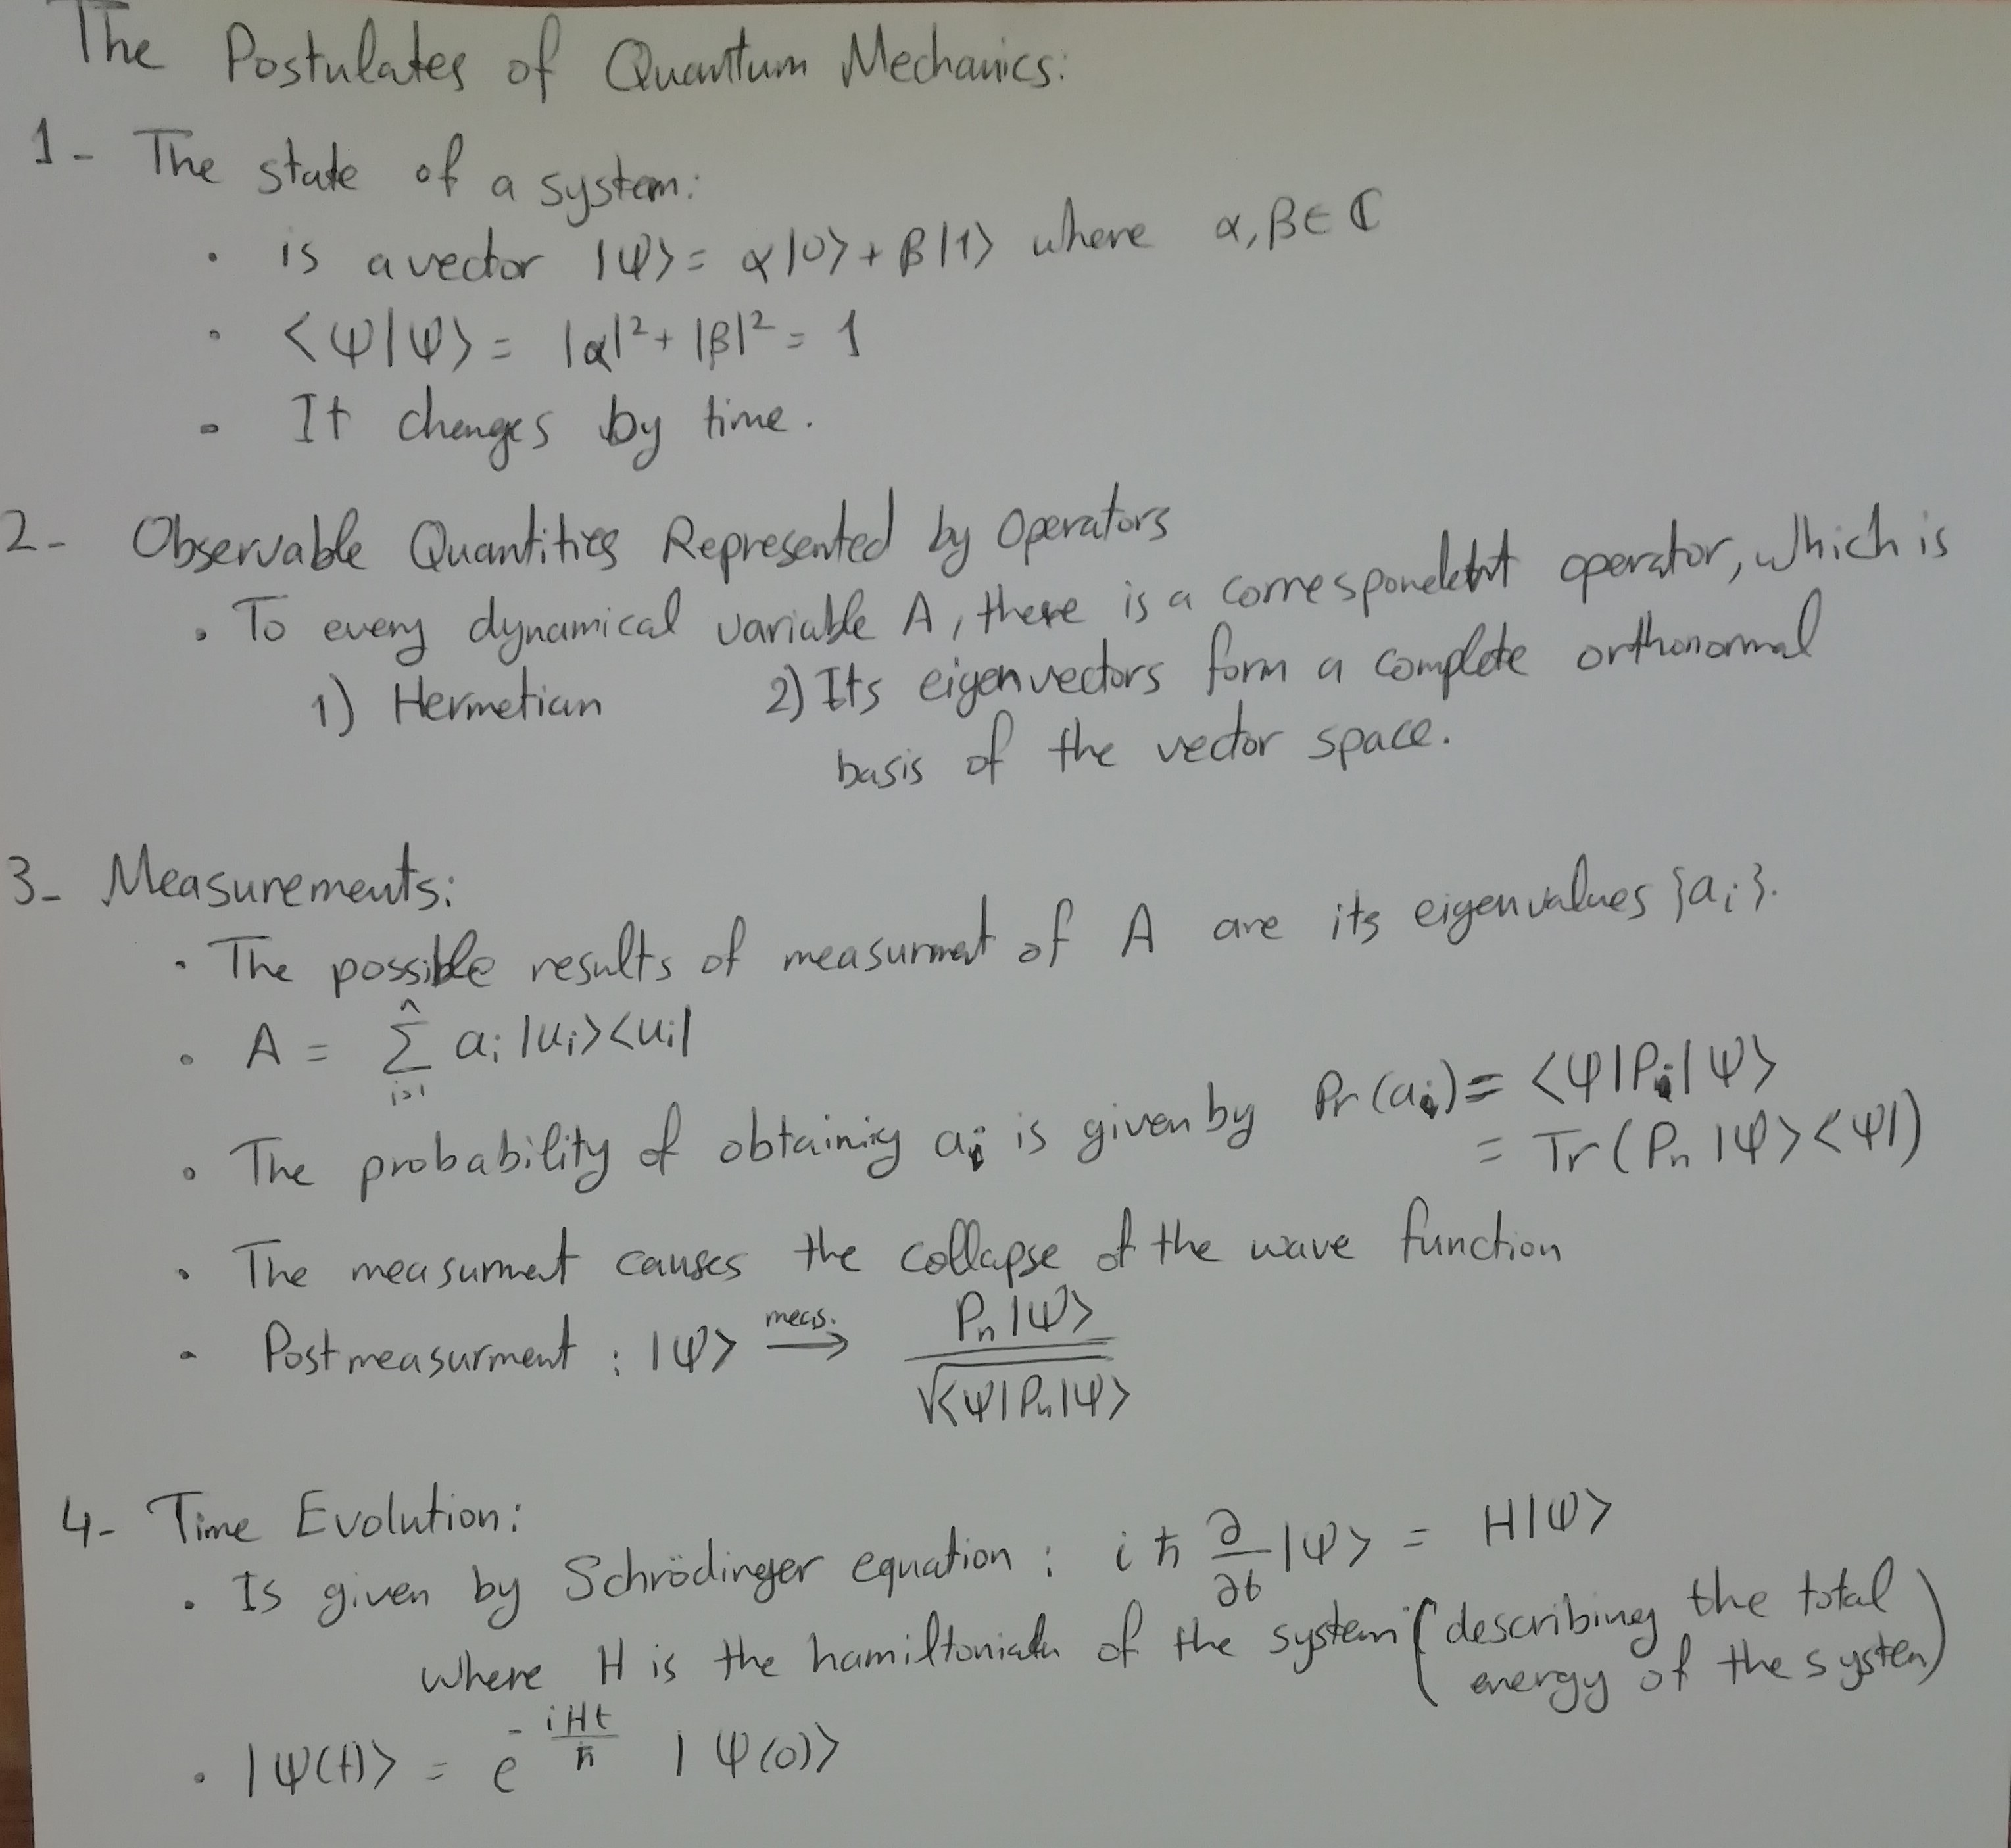 The Postulates of Quantum Mechanics:
1- The state of a system:
• is a vector |ψ> = α|0> + β|1> where α, β ∈ ℂ
• <ψ|ψ> = |α|² + |β|² = 1
• It changes by time.
2- Observable Quantities Represented by Operators
• To every dynamical variable A, there is a correspondetnt operator, which is
1) Hermetian 2) Its eigenvectors form a complete orthonormal
basis of the vector space.
3- Measurements:
• The possible results of measurmet of A are its eigenvalues {aᵢ}.
• A = Σᵢ₌₁ⁿ aᵢ |uᵢ><uᵢ|
• The probability of obtaining aᵢ is given by Pr(aᵢ) = <ψ|Pᵢ|ψ>
= Tr(Pₙ |ψ><ψ|)
• The measurmet causes the collapse of the wave function
• Post measurment : |ψ> meas.⟶ Pₙ|ψ> / √<ψ|Pₙ|ψ>
4- Time Evolution:
• Is given by Schrödinger equation : iħ ∂/∂t |ψ> = H|ψ>
where H is the hamiltonian of the system (describing the total
energy of the system)
• |ψ(t)> = e^(-iHt/ħ) |ψ(0)>